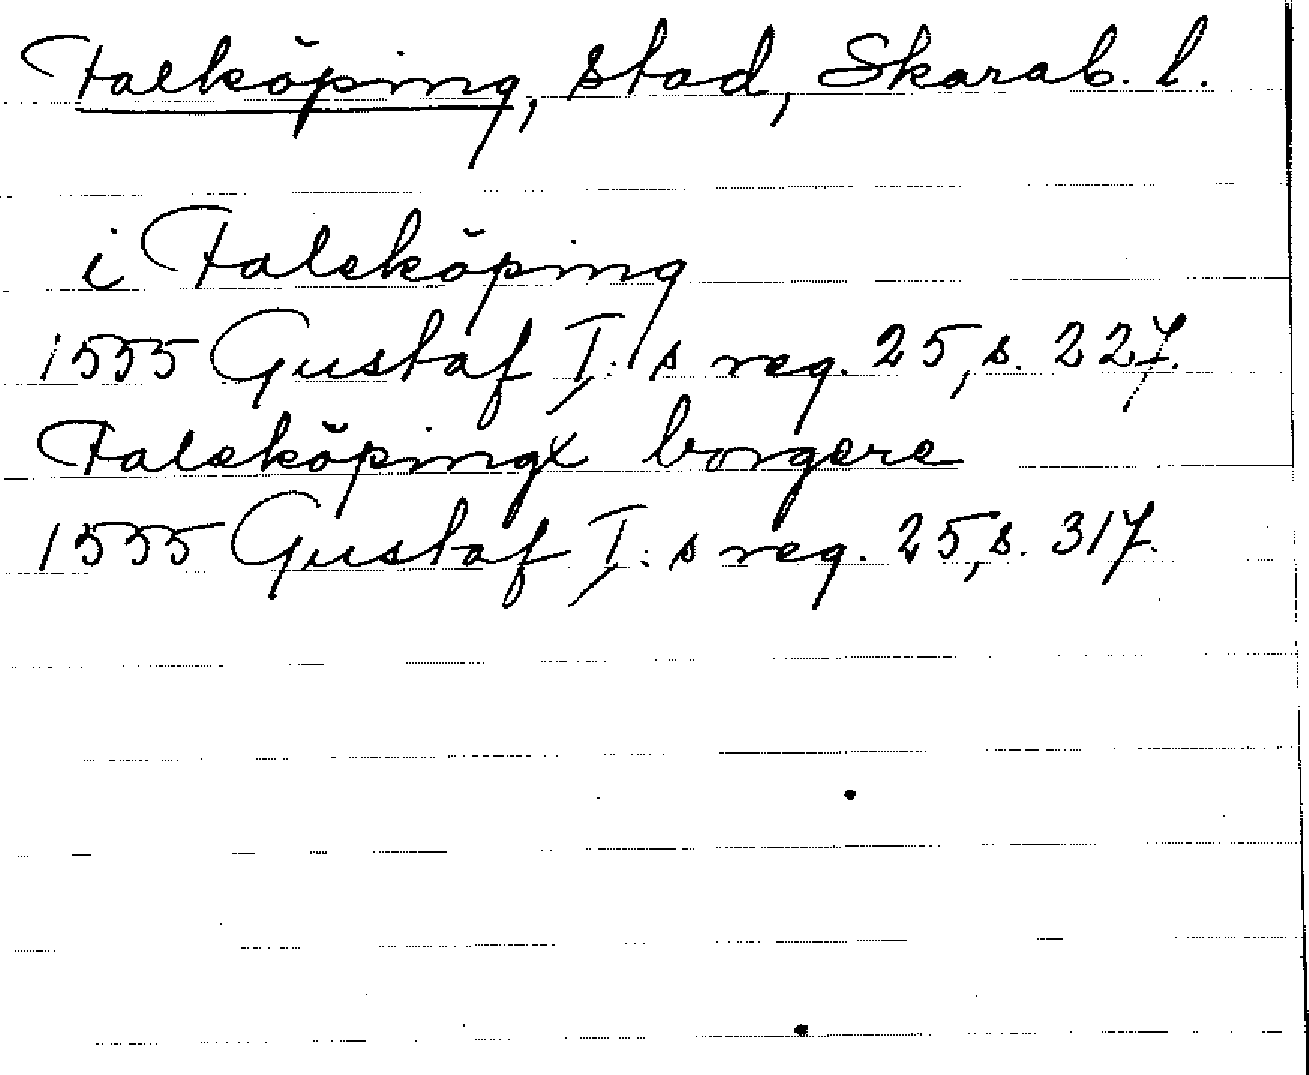 Falköping, stad, Skarab. l.
i Faleköping
1555 Gustaf I:s reg. 25, s. 227.
Faleköpingx borgere
1555 Gustaf I:s reg. 25, s. 317.